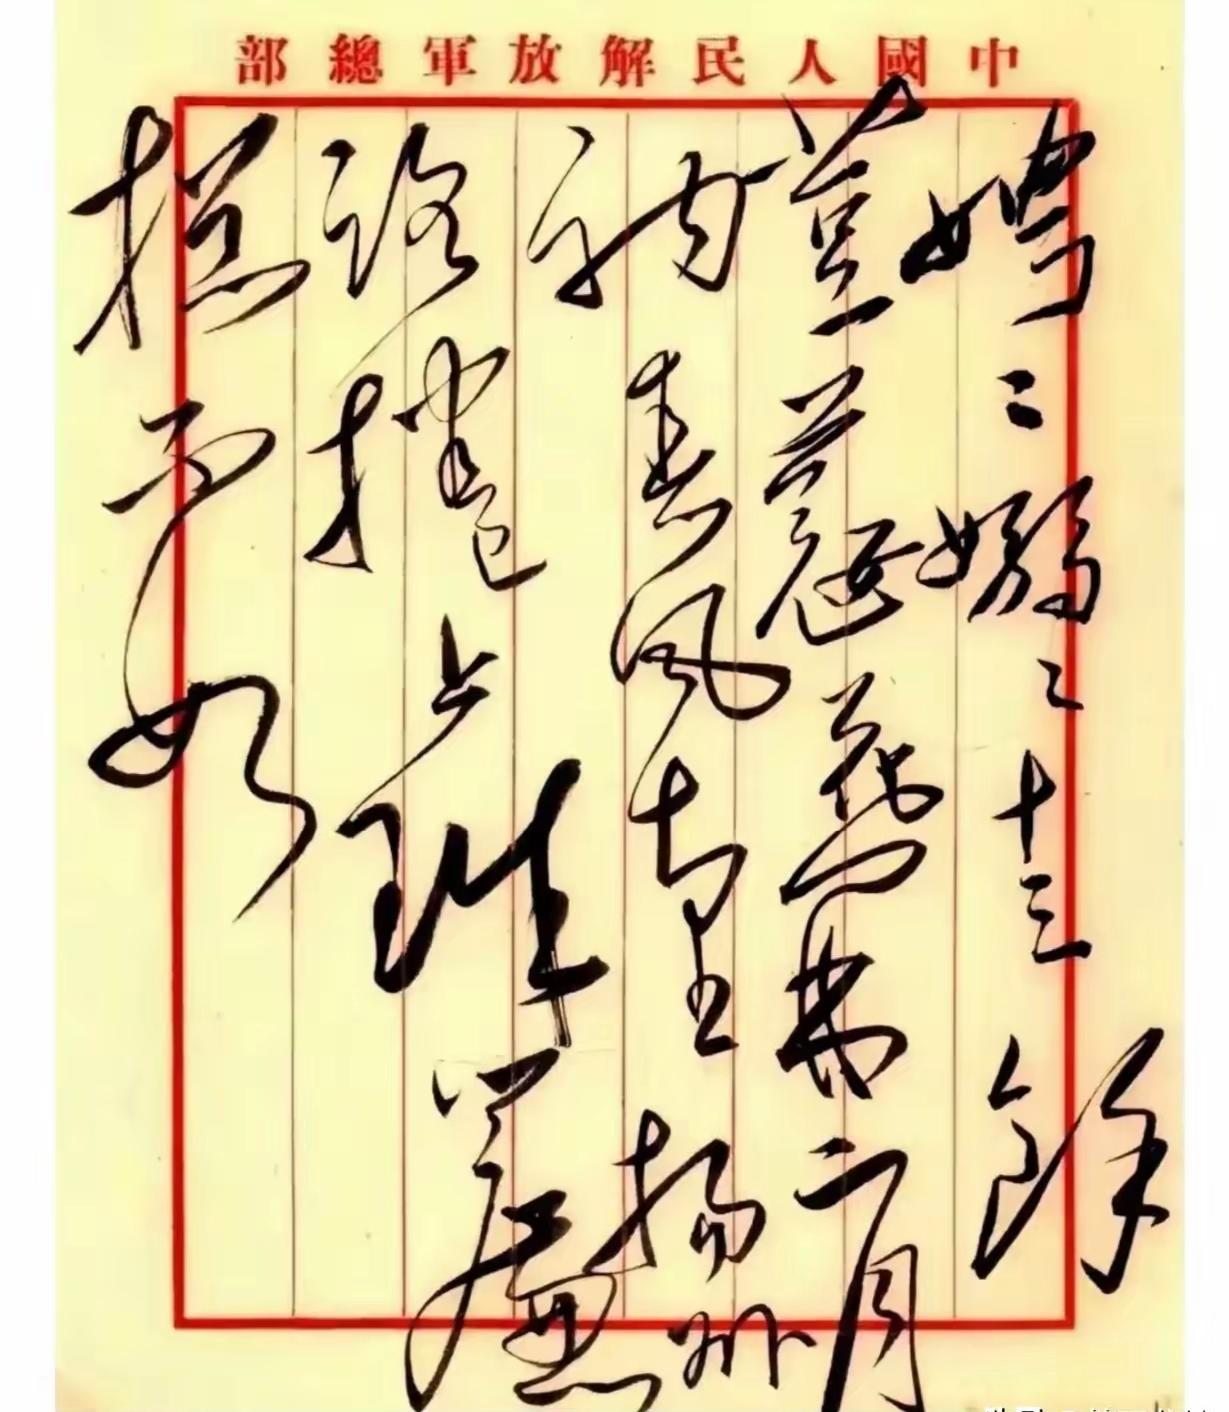 中國人民解放軍總部
娉二嫋二十三餘
荳蔻二月
初春風十里揚州
路捲上珠簾
摠不如